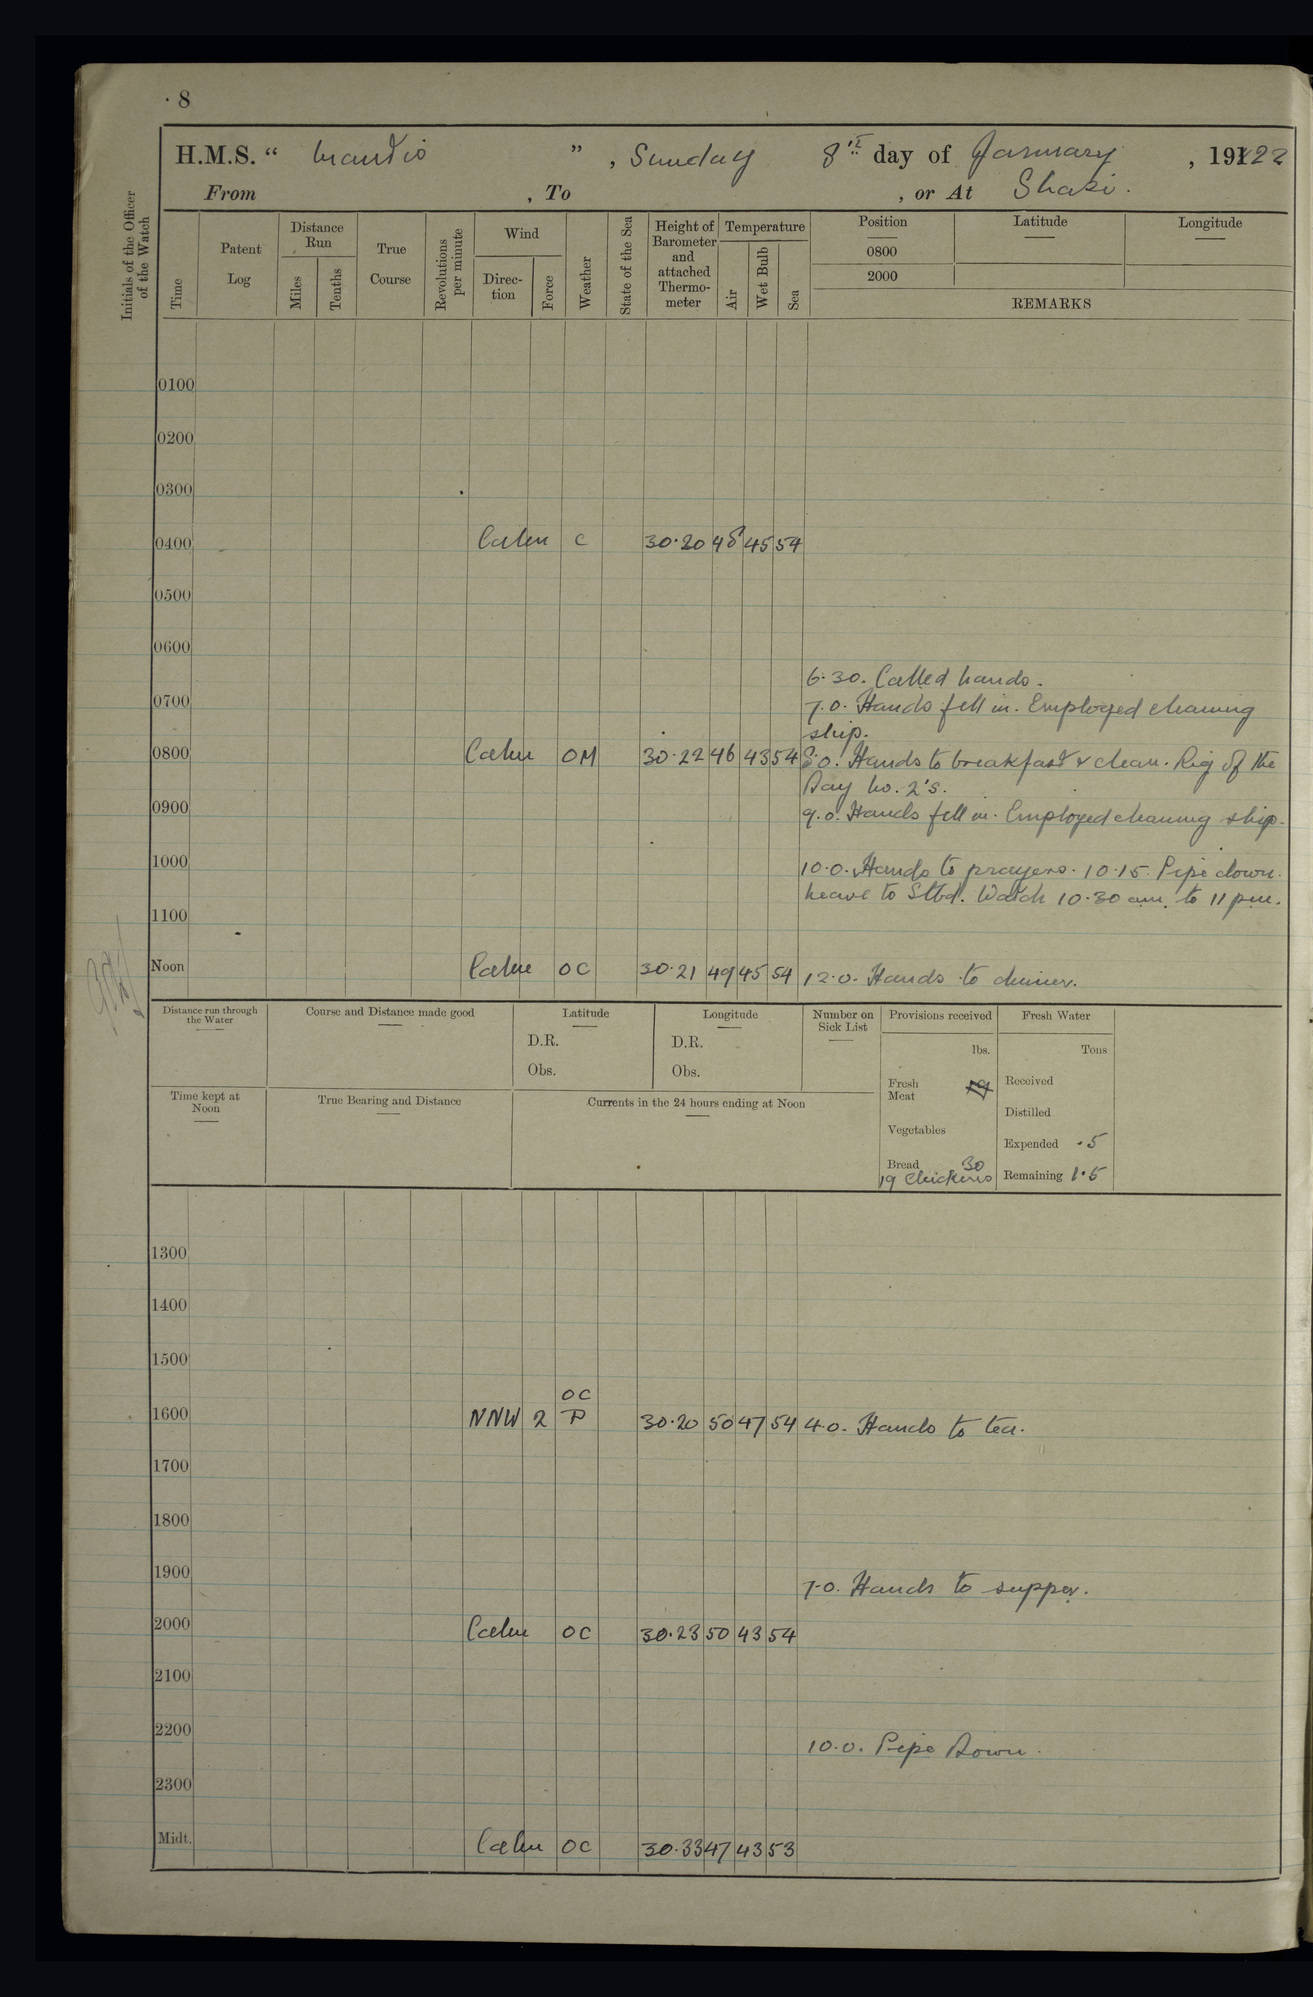 8
H.M.S. " Mantis " , Sunday 8th day of January , 1922
From , To , or At Shasi.
Initials of the Officer of the Watch
Time
Patent Log
Distance Run
Miles
Tenths
True Course
Revolutions per minute
Wind
Direc-tion
Force
Weather
State of the Sea
Height of Barometer and attached Thermo-meter
Temperature
Air
Wet Bulb
Sea
Position Latitude Longitude
0800
2000
REMARKS
0100
0200
0300
0400 Calm C 30.20 48 45 54
0500
0600
6.30. Called hands.
0700 7.0. Hands fell in. Employed cleaning
ship.
0800 Calm OM 30.22 46 43 54 8.0. Hands to breakfast & clean. Rig of the
Day No. 2's.
0900 9.0. Hands fell in. Employed cleaning ship.
1000 10.0. Hands to prayers. 10.15. Pipe down.
Leave to Stbd. Watch 10.30 am. to 11 pm.
1100
Noon Calm OC 30.21 49 45 54 12.0. Hands to dinner.
Distance run through the Water
Course and Distance made good
Latitude
D.R.
Obs.
Longitude
D.R.
Obs.
Number on Sick List
Provisions received
lbs.
Fresh Meat
Vegetables
Bread 30
19 Chickens
Fresh Water
Tons
Received
Distilled
Expended .5
Remaining 1.5
Time kept at Noon
True Bearing and Distance
Currents in the 24 hours ending at Noon
1300
1400
1500
OC
1600 NNW 2 P 30.20 50 47 54 4.0. Hands to tea.
1700
1800
1900 7.0. Hands to supper.
2000 Calm OC 30.23 50 43 54
2100
2200 10.0. Pipe Down.
2300
Midt. Calm OC 30.33 47 43 53